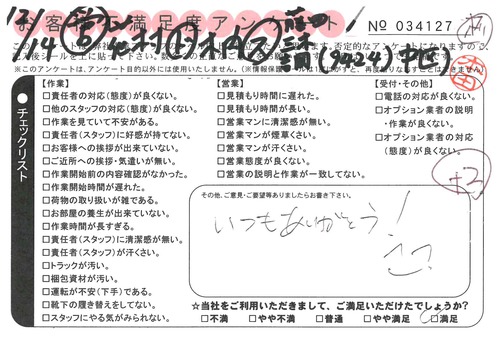 お客様満足度アンケート
№ 034127
※このアンケートは、アンケート目的以外には使用いたしません。
チェックリスト
【作業】
□責任者の対応(態度)が良くない。
□他のスタッフの対応(態度)が良くない。
□作業を見ていて不安がある。
□責任者(スタッフ)に好感が持てない。
□お客様への挨拶が出来ていない。
□ご近所への挨拶・気遣いが無い。
□作業開始前の内容確認がなかった。
□作業開始時間が遅れた。
□荷物の取り扱いが雑である。
□お部屋の養生が出来ていない。
□作業時間が長すぎる。
□責任者(スタッフ)に清潔感が無い。
□責任者(スタッフ)が汗くさい。
□トラックが汚い。
□梱包資材が汚い。
□運転が不安(下手)である。
□靴下の履き替えをしてない。
□スタッフにやる気がみられない。
【営業】
□見積もり時間に遅れた。
□見積もり時間が長い。
□営業マンに清潔感が無い。
□営業マンが煙草くさい。
□営業マンが汗くさい。
□営業態度が良くない。
□営業の説明と作業が一致してない。
【受付・その他】
□電話の対応が良くない。
□オプション業者の説明・作業が良くない。
□オプション業者の対応(態度)が良くない。
その他、ご意見・ご要望等ありましたらお書き下さい。
いつもありがとう!
☆当社をご利用いただきまして、ご満足いただけたでしょうか?
□不満 □やや不満 □普通 □やや満足 □満足